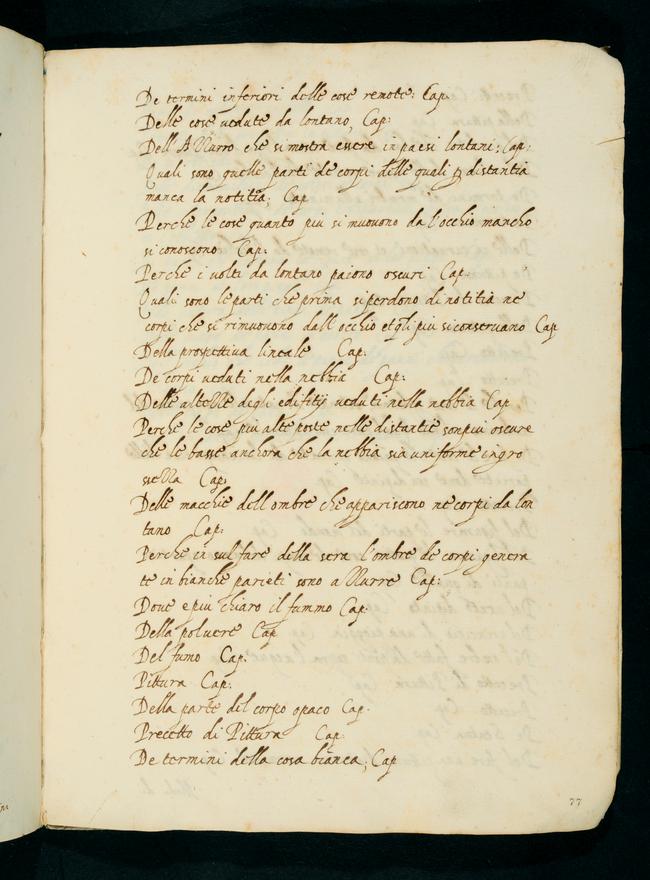 De termini inferiori delle cose remote: Cap:
Delle cose uedute da lontano, Cap:
Dell'Azzurro che si mostra essere in paesi lontani; Cap:
Quali sono quelle parti de corpi delle quali ꝑ distantia
manca la notitia; Cap
Perche le cose quanto più si muouono da l'occhio mancho
si conoscono Cap:
Perche i uolti da lontano paiono oscuri Cap:
Quali sono le parti che prima si perdono di notitia ne
corpi che si rimuouono dall'occhio et qli più si conseruano Cap
Della prospettiua lineale Cap:
De corpi ueduti nella nebbia Cap:
Delle altezze degli edifitij ueduti nella nebbia Cap
Perche le cose più alte poste nelle distantie son più oscure
che le basse anchora che la nebbia sia uniforme in gro
ssezza Cap:
Delle macchie dell ombre che appariscono ne corpi da lon
tano Cap:
Perche in sul fare della sera l'ombre de corpi genera
te in bianche parieti sono azzurre Cap:
Doue e più chiaro il fummo Cap:
Della poluere Cap
Del fumo Cap:
Pittura Cap:
Della parte del corpo opaco Cap:
Precetto di Pittura Cap:
De termini della cosa bianca; Cap
77